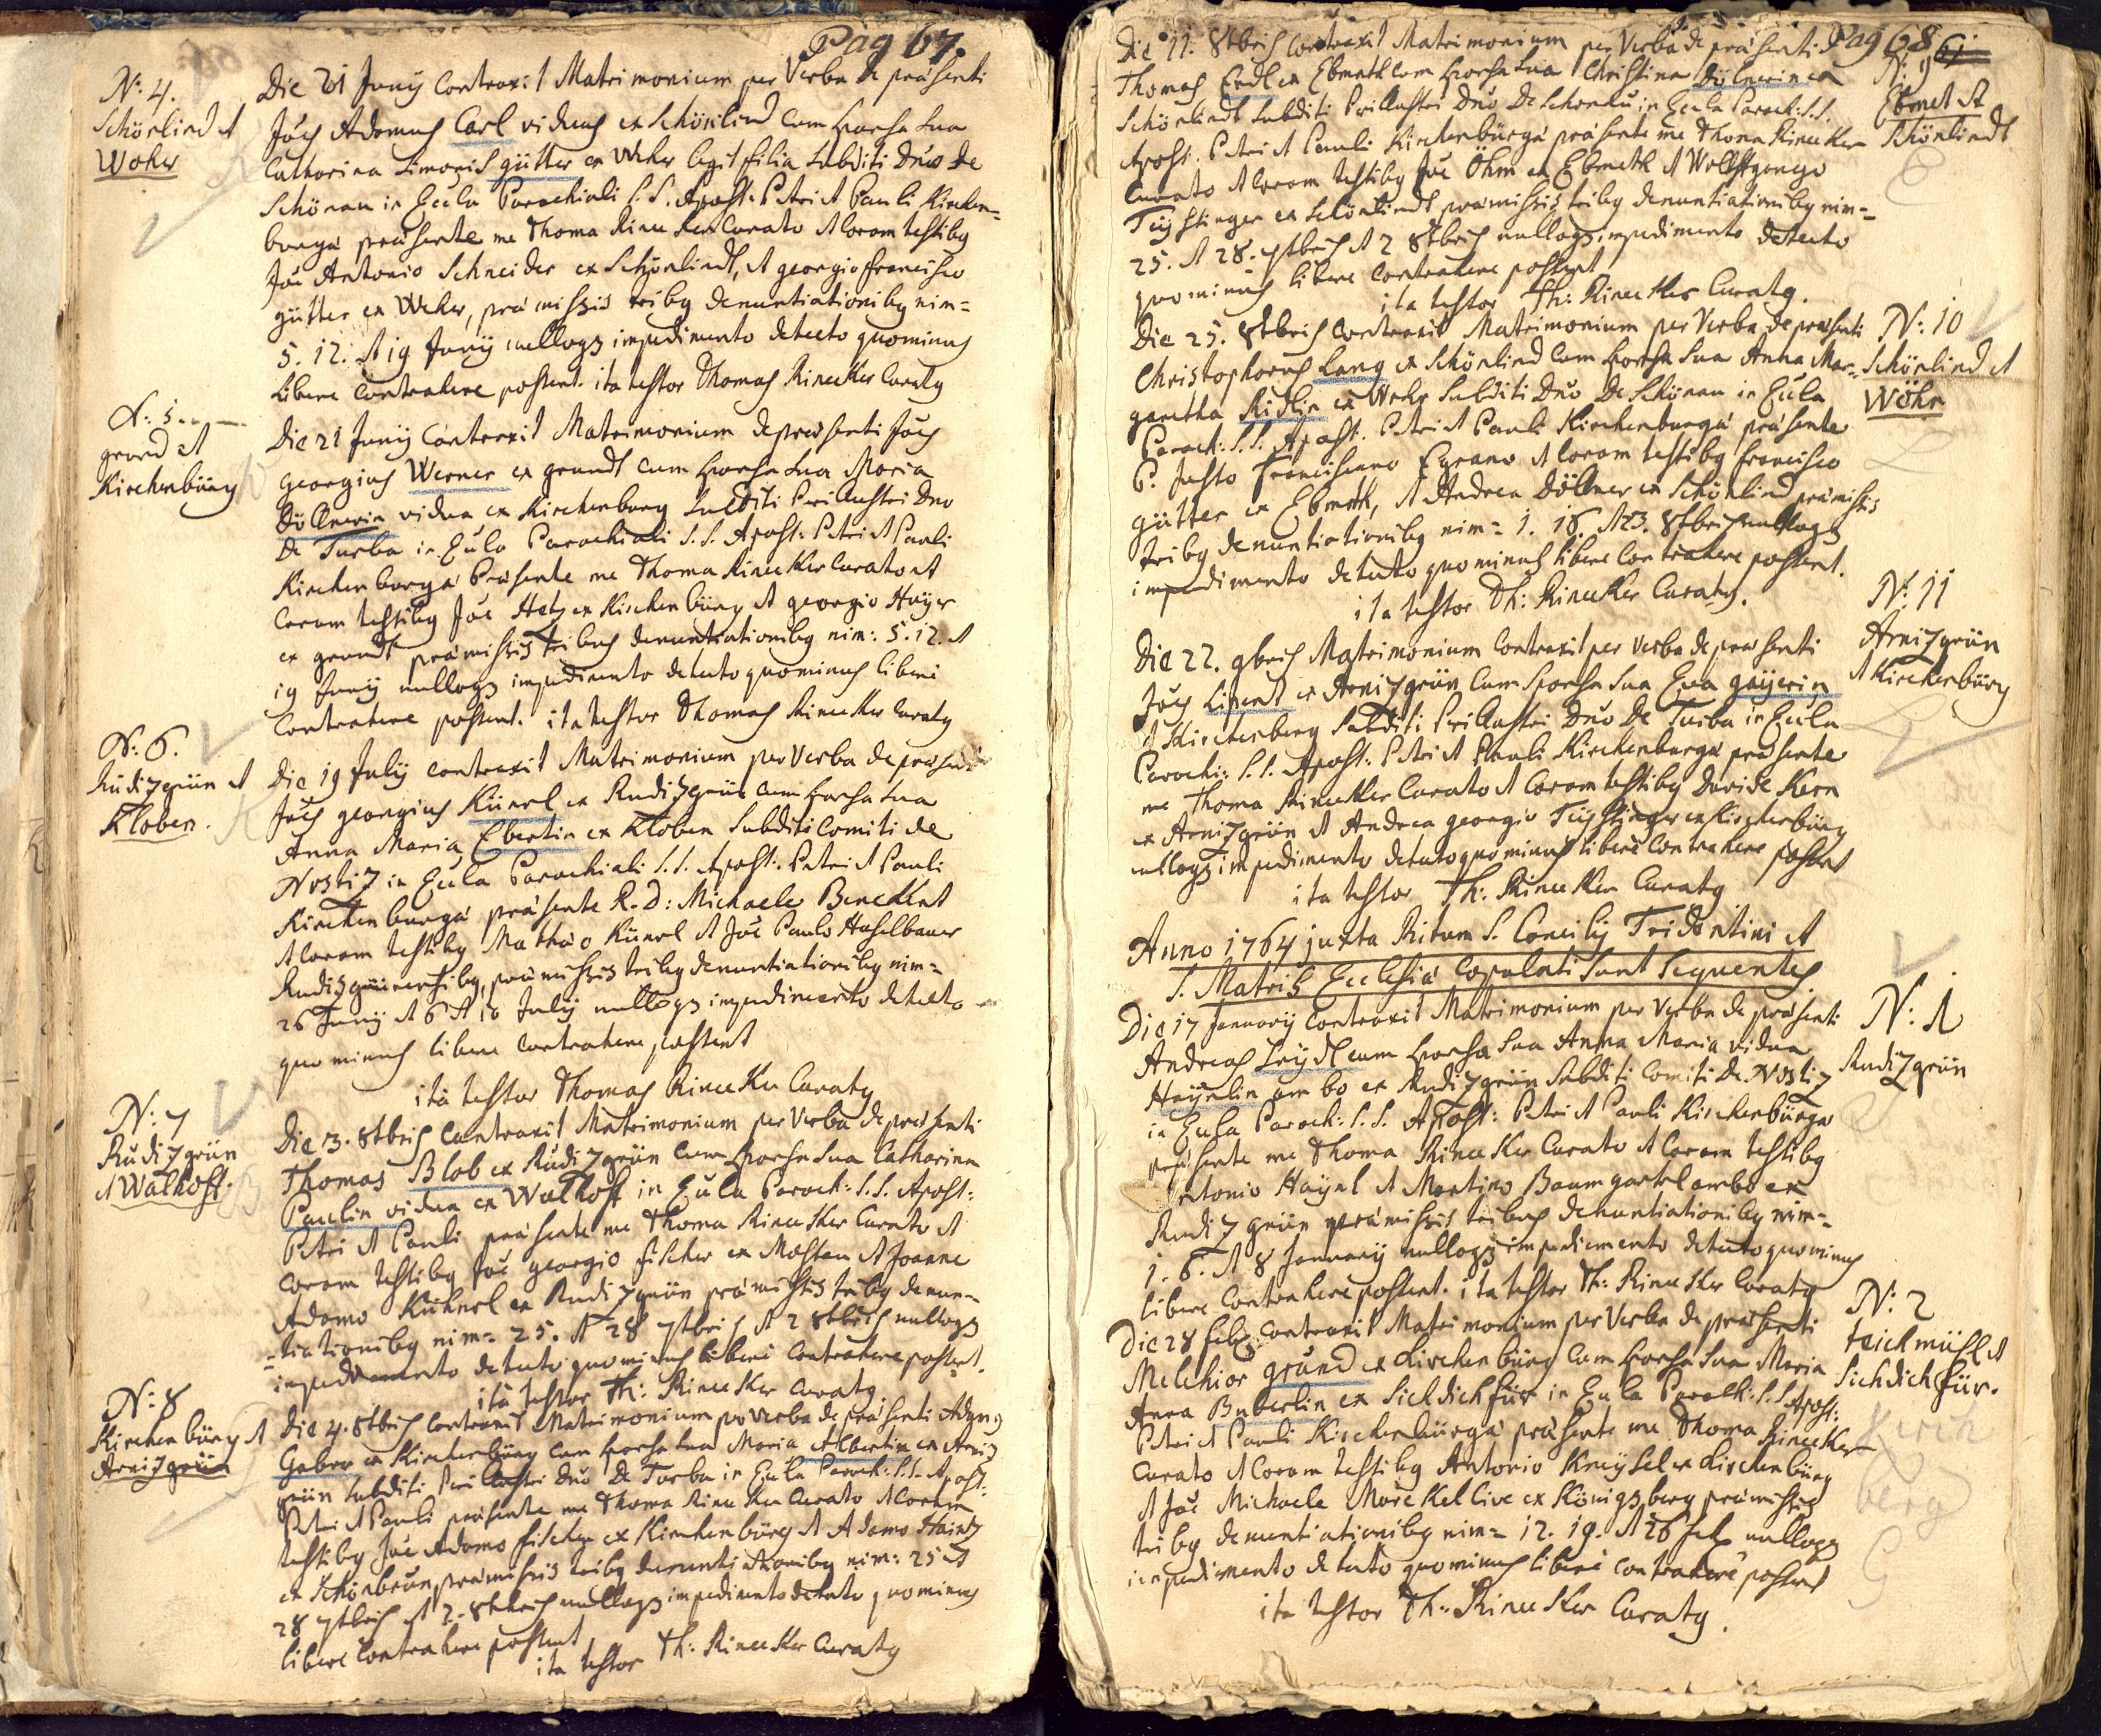 Pag 67.
N: 4.
Schönlind et
Woher
Die 21 Junÿ contraxit Matrimonium per Verba de præsenti
Joês Adamus Carl viduus ex Schönlind cum sponsa sua
Catharina Simonis gütter ex Weher legit filia subditi Dno de
Schönau in Eccla Parochiali S.S. Apost: Petri et Pauli Kirchen=
burgæ præsente me Thoma Rinecker Curato et coram testibg
Joê Antonio Schneider ex Schönlindt, et georgio francisco
gütter ex Weher, præmissis tribg denuntiationibg nim=
5. 12. et 19 Junÿ nullogs impedimento detecto quominus
libere contrahere possent. ita testor Thomas Rinecker Curatg
N: 5.
grund et
Kirchenbürg
Die 21 Junÿ Contraxit Matrimonium de præsenti Joês
georgius Werner ex grundt cum sponsa sua Maria
Döllnerin vidua ex Kirchenburg subditi Perillustri Dno
De Turba in Eccla Parochiali S.S. Apost: Petri et Pauli
Kirchenburgæ Præsente me Thoma Rinecker Curato et
Coram testibg Joê Hetz ex Kirchenbürg et georgio Hoÿer
ex grundt præmissis tribus denuntiationibg nim: 5. 12. et
19 Junÿ nullogs impedimento detecto quominus libere
contrahere possent. ita testor Thomas Rinecker Curatg
N: 6.
Rudi7grün et
Kloben.
Die 19 Julÿ contraxit Matrimonium per Verba de præsenti
Joês georgius Künrl ex Rudi7grün cum sponsa sua
Anna Maria Ebertin ex Kloben subditi Comiti de
Nosti7 in Eccla Parochiali S.S. Apost: Petri et Pauli
Kirchenburgæ præsente R.D: Michaele Beneckent
et coram testibg Mathæo Künrl et Joê Paulo Haselbauer
Rudisgrünensibg, præmissis tribg denuntiationibg nim=
26 Junÿ et 6 et 10 Julÿ nullogs impedimento detecto
quominus libere contrahere possent
ita testor Thomas Rinecker Curatg
N: 7
Rudi7grün
et Walhoft.
Die 3. 8tbris Contraxit Matrimonium per Verba de præsenti
Thomas Blob ex Rudi7grün cum sponsa sua Catharina
Paulin vidua ex Walhoft in Eccla Paroch: S.S. Apost:
Petri et Pauli præsente me Thoma Rinecker Curato et
coram testibg Joê georgio fischer ex Mosten et Joanne
Adamo Kühnrl ex Rudi7grün præmissis tribg denun=
=tiationibg nim= 25. et 28 7tbris et 2 8tbris nullogs
impedimento detecto quominus libere contrahere possent.
ita testor Th: Rinecker Curatg
N: 8
Kirchenbürg et
Arni7grün
Die 4. 8tbris Contraxit Matrimonium per Verba de præsenti Adamg
Gabra ex Kirchenbürg cum sponsa sua Maria Albertin ex Arni7
grün subditi Perillustri Dno De Turba in Eccla Paroch: S.S. Apost:
Petri et Pauli præsente me Thoma Rinecker Curato et coram
testibg Joê Adamo fischer ex Kirchenbürg et Adamo Haintz
ex Schönbrun præmissis tribg denuntiationibg nim: 25 et
28 7tbris et 2. 8tbris nullogs impedimento detecto quominus
libere contrahere possent
ita testor Th: Rinecker Curatg
Pag 68
Die 11. 8tbris contraxit Matrimonium per Verba de præsenti
N: 9
Ebmet et
Schönlindt
Thomas Erdl ex Ebmeth cum sponsa sua Christina Dölnerin ex
Schönlindt subditi Perillustri Dno De Schonau in Eccla Paroch: S.S.
Apost. Petri et Pauli Kirchenbürgæ præsente me Thoma Rinecker
Curato et coram testibg Joê Öhm ex Ebmeth et Wolffgango
Tüstinger ex Schönlindt præmissis tribg denuntiationibg nim=
25. et 28. 7tbris et 2 8tbris nullogs impedimento detecto
quominus libere contrahere possent
ita testor Th: Rinecker Curatg.
N: 10
Schönlind et
Wöhr
Die 25. 8tbris contraxit Matrimonium per Verba de præsenti
Christophorus Lang ex Schönlind cum sponsa sua Anna Mar=
garetha Ridlin ex Wehr subditi Dno De Schönau in Eccla
Paroch: S.S. Apost. Petri et Pauli Kirchenburgæ præsente
P. Justo franciscano Egrano et coram testibg francisco
gütter ex Ebmeth, et Andrea Döllner ex Schönlind præmissis
tribg denuntiationibg nim= 1. 16. et 23. 8tbris nullogs
impedimento detecto quominus libere contrahere possent.
ita testor Th: Rinecker Curatg.
N: 11
Arni7grün
et Kirchenbürg
Die 22. 9bris Matrimonium contraxit per Verba de præsenti
Joês Linent ex Arni7grün cum sponsa sua Eva gaÿerin
ex Kirchenberg subditi Perillustri Dno De Turba in Eccla
Parochi: S.S. Apost: Petri et Pauli Kirchenburgæ præsente
me Thoma Rinecker Curato et coram testibg Davide Kern
ex Arni7grün et Andrea georgio Tüstinger ex Kirchenbürg
nullogs impedimento detecto quominus libere contrahere possent
ita testor Th: Rinecker Curatg
Anno 1764 juxta Ritum S. Concilÿ Tridentini et
S. Matris Ecclesiæ Copulati sunt sequentes
N: 1
Rudi7grün
Die 17 Januarÿ contraxit Matrimonium per Verba de præsenti
Andreas Leÿdl cum sponsa sua Anna Maria vidua
Haÿnlin ambo ex Rudi7grün subditi Comiti De Nosti7
in Eccla Paroch: S.S. Apost: Petri et Pauli Kirchenbürgæ
præsente me Thoma Rinecker Curato et coram testibg
Antonio Haÿnl et Martino Baumgartel ambo ex
Rudi7grün præmissis tribus denuntiationibg nim=
1. 6. et 8 Januarÿ nullogs impedimento detecto quominus
libere contrahere possent. ita testor Th: Rinecker Curatg
N: 2
teichmühl et
Sichdichfür.
Die 28 feb contraxit Matrimonium per Verba de præsenti
Melchior gründ ex Kirchenbürg cum sponsa sua Maria
Anna Buberlin ex Sichdichfür in Eccla Paroch: S.S. Apost:
Petri et Pauli Kirchenbürgæ præsente me Thoma Rinecker
Curato et coram testibg Antonio Kneÿsel ex Kirchenbürg
et Joê Michaele More Kellive ex Königsberg præmissis
tribg denuntiationibg nim= 12. 19. et 26 feb nullogs
impedimento detecto quominus libere contrahere possent
ita testor Th: Rinecker Curatg.
Kirch
berg
G